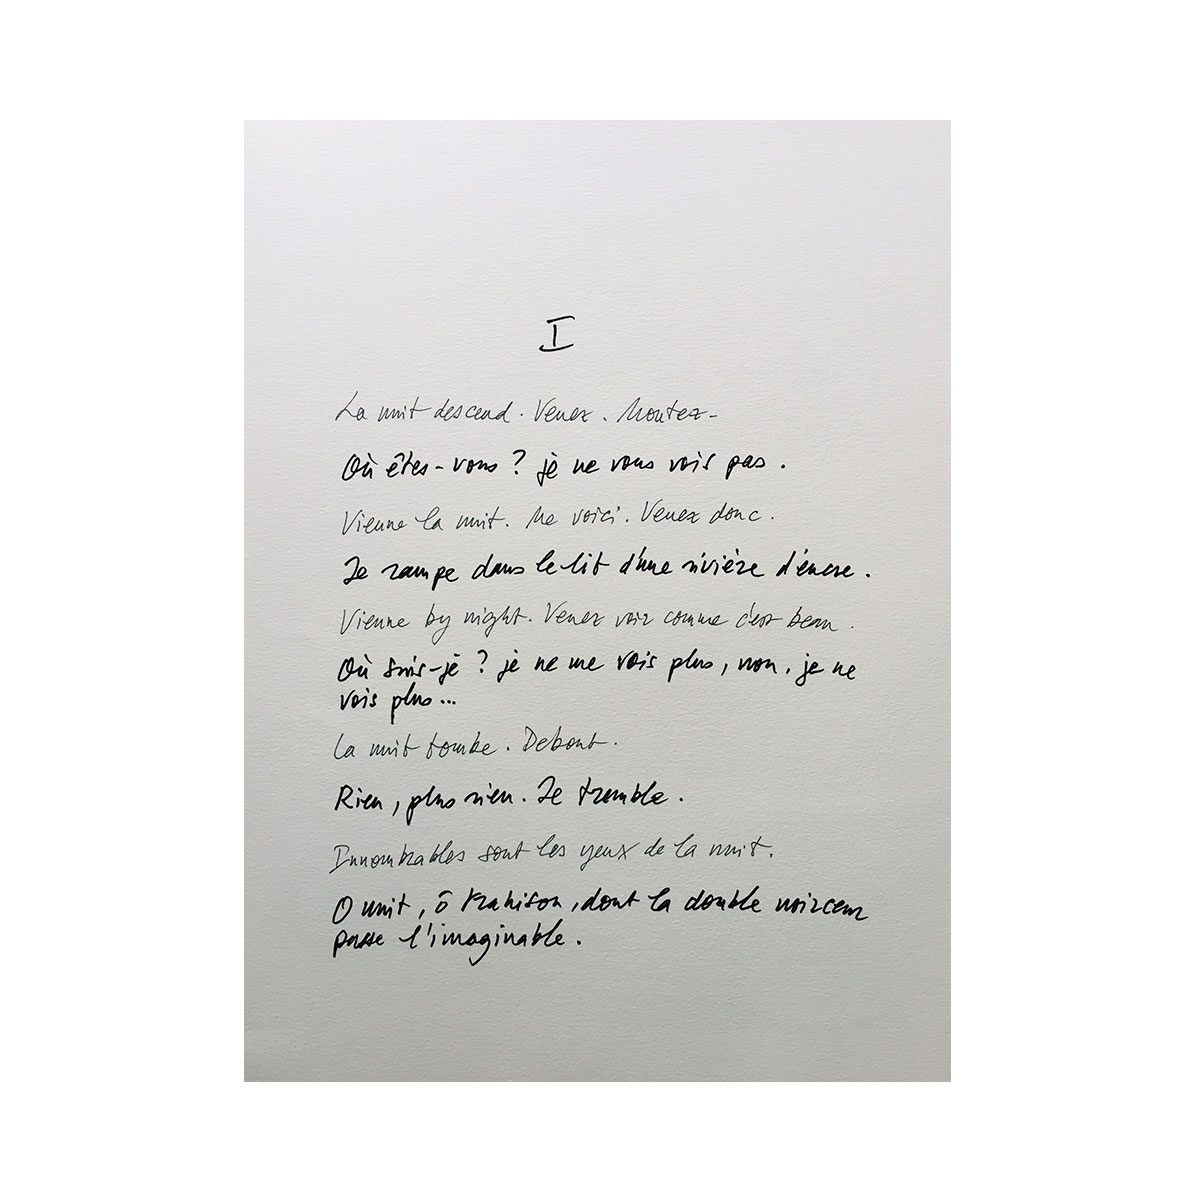 I
La nuit descend. Venez. Montez-
Où êtes-vous ? je ne vous vois pas.
Vienne la nuit. Me voici. Venez donc.
Je rampe dans le lit d'une rivière d'encre.
Vienne by night. Venez voir comme c'est beau.
Où suis-je ? je ne me vois plus, non, je ne
vois plus...
La nuit tombe. Debout.
Rien, plus rien. Je tremble.
Innombrables sont les yeux de la nuit.
O nuit, ô trahison, dont la double noirceur
passe l'imaginable.